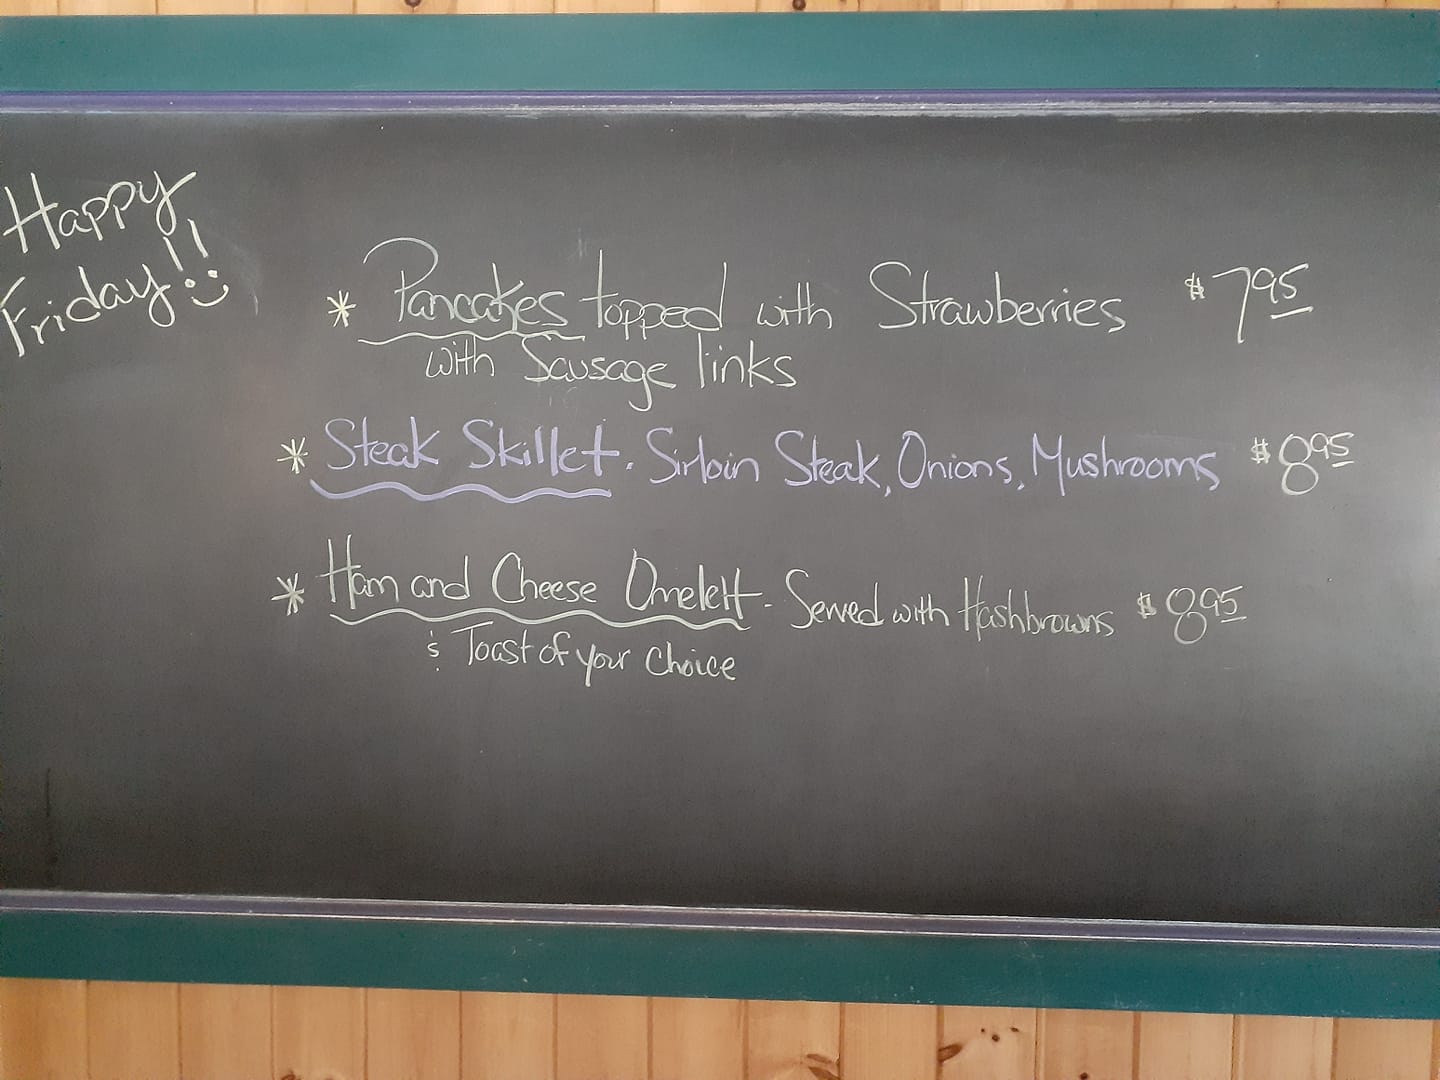 Happy
Friday!! :)
* Pancakes topped with Strawberries $7 95
with Sausage links
* Steak Skillet. Sirloin Steak, Onions, Mushrooms $8 95
* Ham and Cheese Omelett - Served with Hashbrowns $8 95
& Toast of your choice